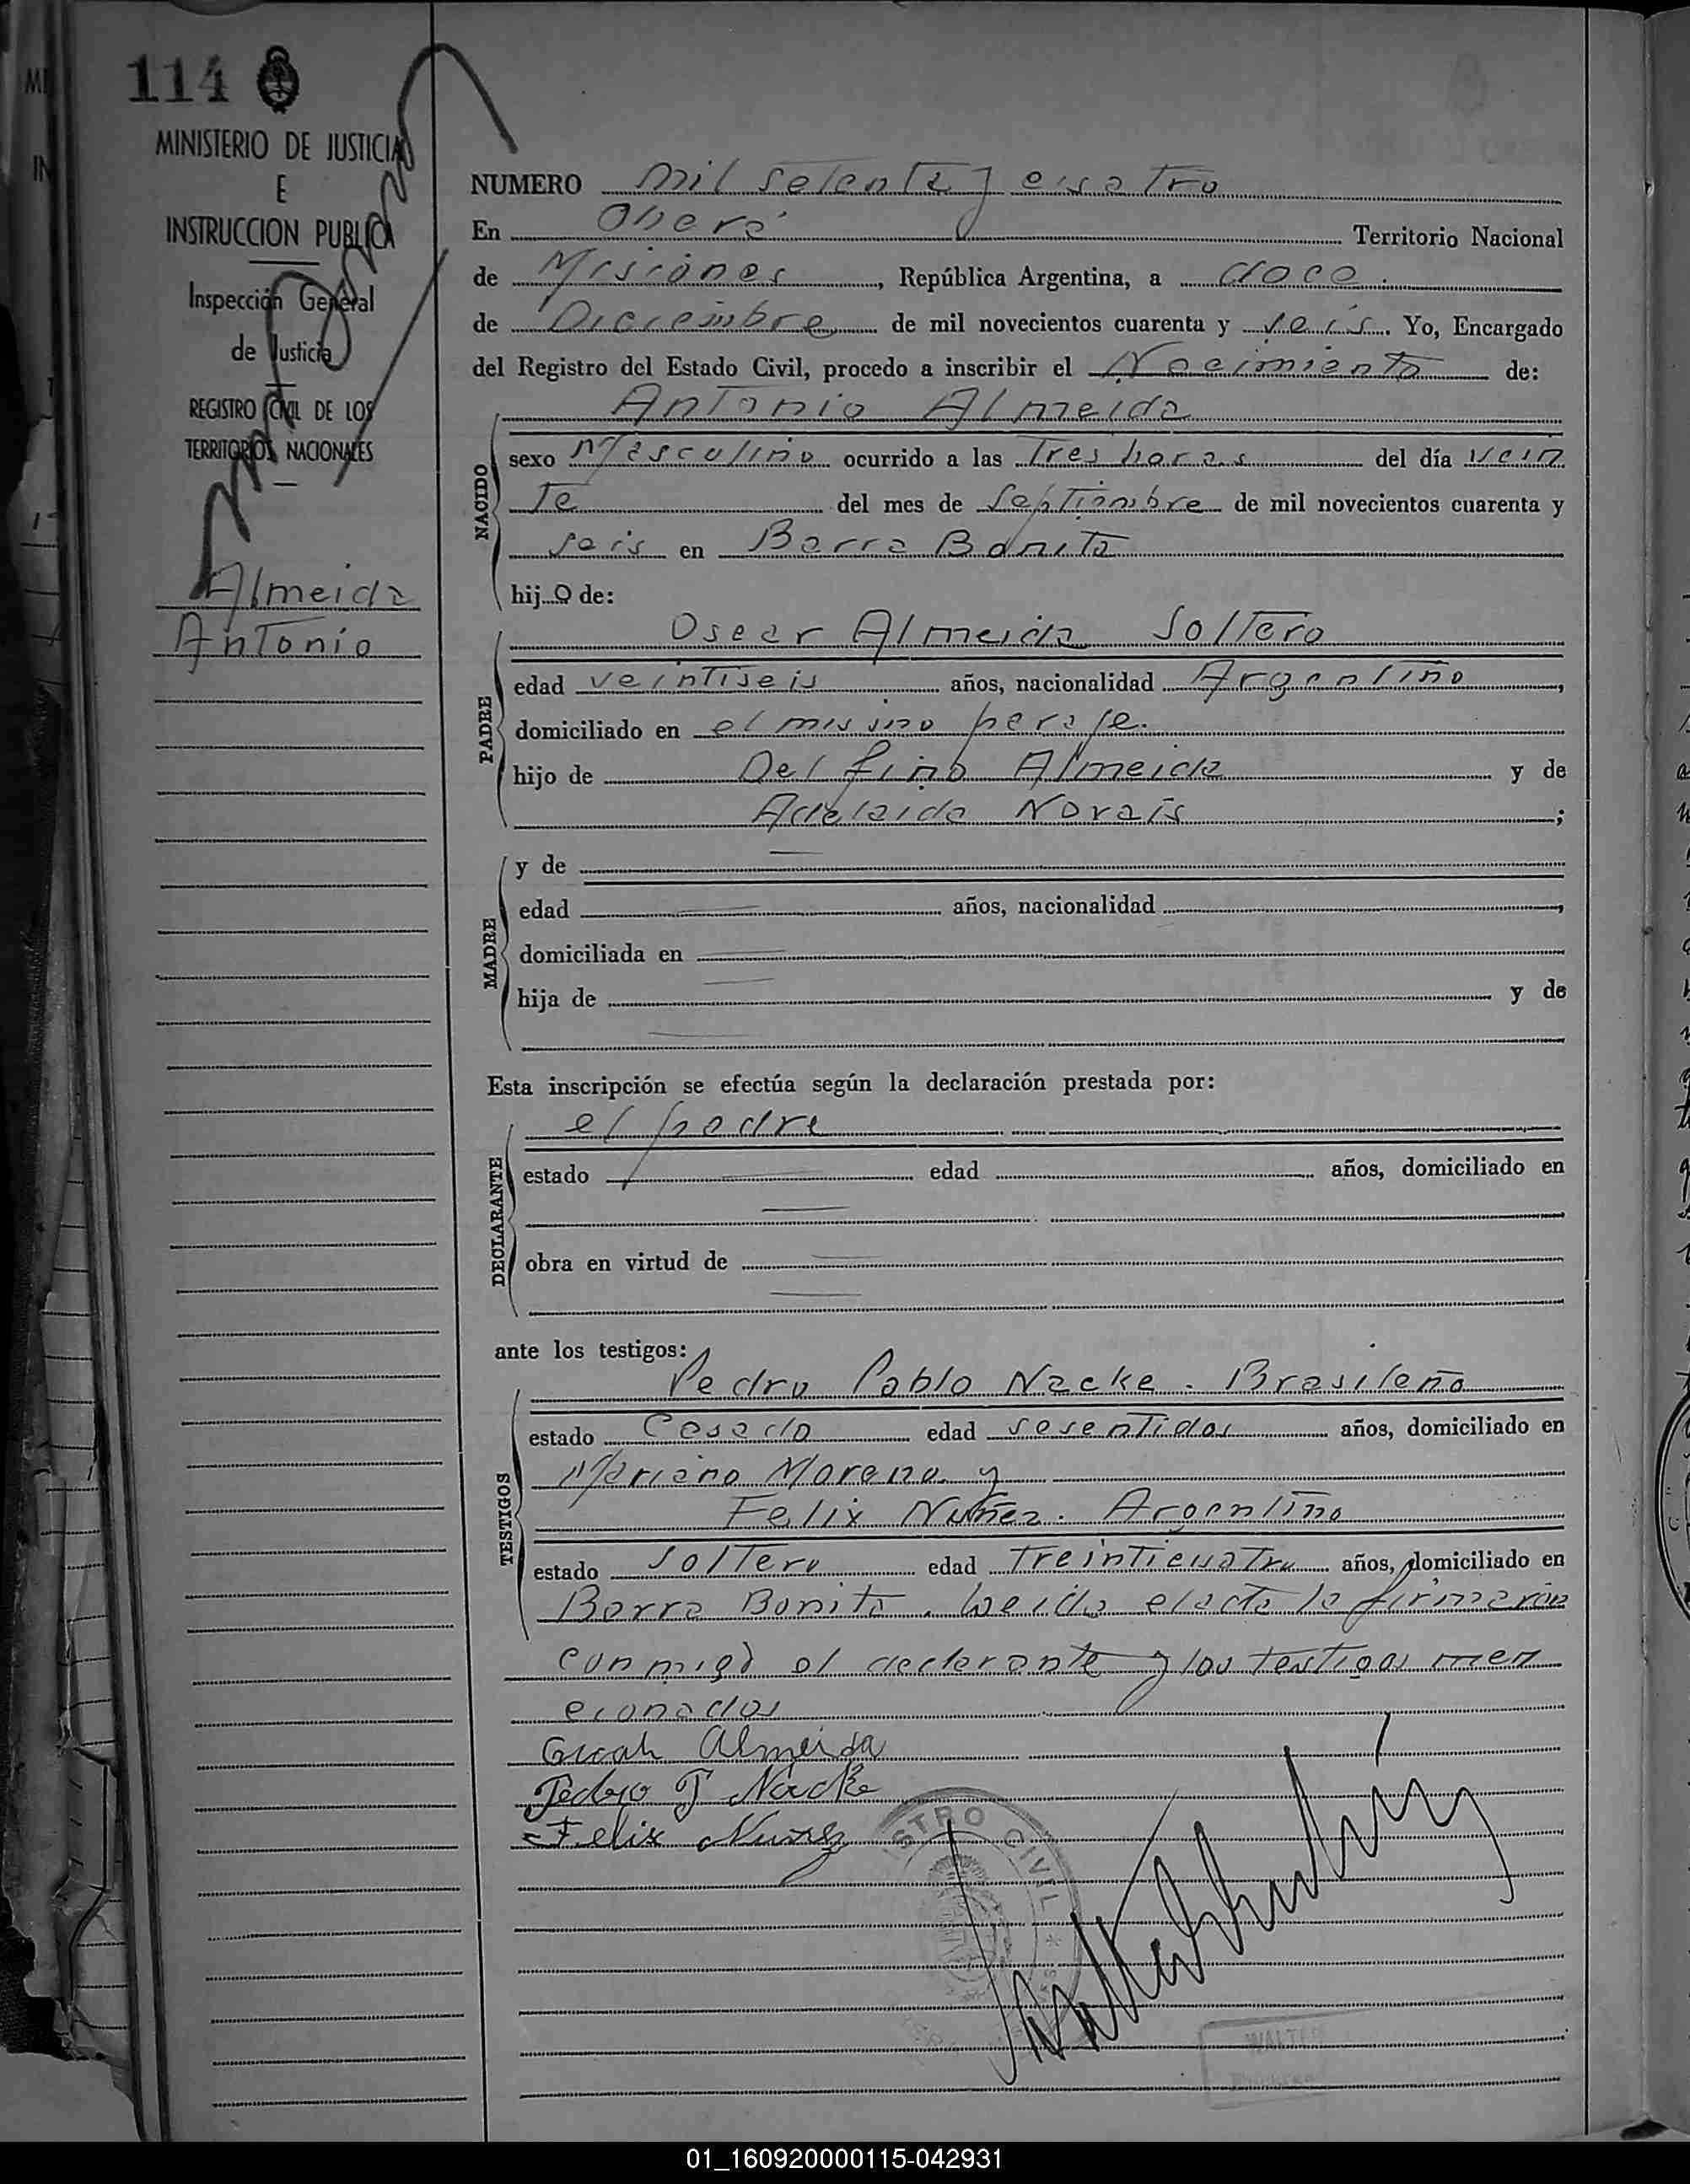 114
MINISTERIO DE JUSTICIA
E
INSTRUCCION PUBLICA
Inspección General
de Justicia
REGISTRO CIVIL DE LOS
TERRITORIOS NACIONALES
Almeida
Antonio
NUMERO mil setenta y cuatro
En Oberá Territorio Nacional
de Misiones, República Argentina, a doce
de Diciembre de mil novecientos cuarenta y seis. Yo, Encargado
del Registro del Estado Civil, procedo a inscribir el Nacimiento de:
Antonio Almeida
NACIDO
sexo Masculino ocurrido a las Tres horas del día vein
te del mes de Septiembre de mil novecientos cuarenta y
seis en Barra Bonita
hijo de:
PADRE
Oscar Almeida Soltero
edad veintiseis años, nacionalidad Argentino,
domiciliado en el mismo paraje.
hijo de Delfino Almeida y de
Adelaida Norais;
MADRE
y de
edad años, nacionalidad,
domiciliada en
hija de y de
Esta inscripción se efectúa según la declaración prestada por:
DECLARANTE
el padre
estado edad años, domiciliado en
obra en virtud de
ante los testigos:
TESTIGOS
Pedro Pablo Nacke. Brasileño
estado Casado edad sesentidos años, domiciliado en
Mariano Moreno y
Felix Nuñez. Argentino
estado Soltero edad treinticuatro años, domiciliado en
Barra Bonita. Leida el acta la firmaron
conmigo el declarante y los testigos men
cionados
Almeida
Pedro P Nacke
Felix Nuñez
STRO CIVIL
WALTER
01_160920000115-042931